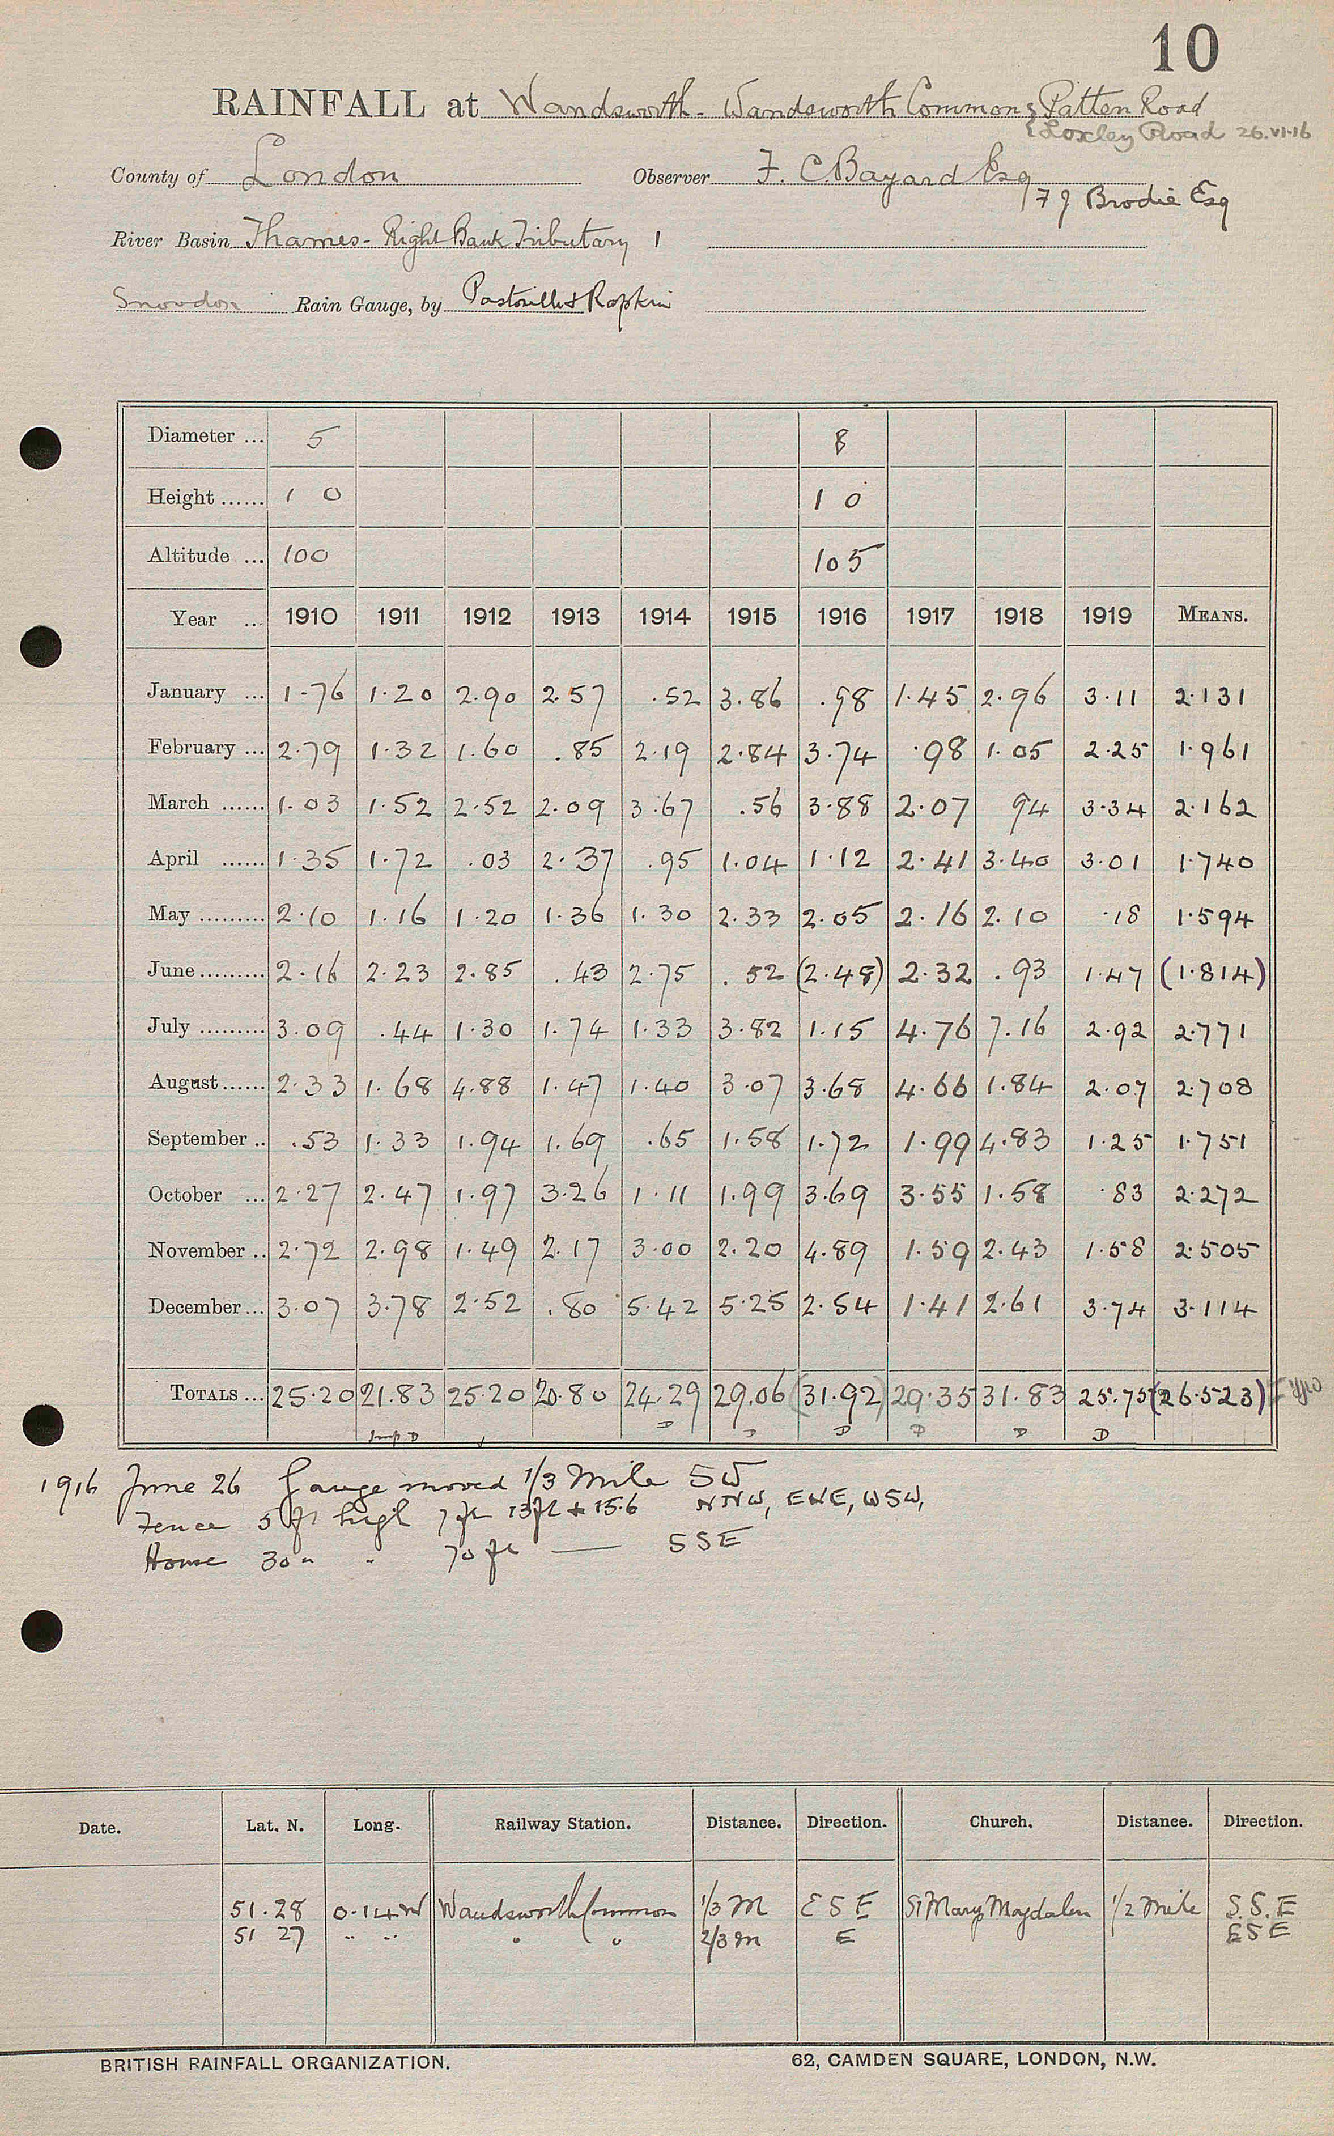 10
RAINFALL at Wandsworth - Wandsworth Common { Patten Road
{ Loxley Road 26.VI.16
County of London Observer F. C. Bayard Esq
/ F J Brodie Esq
River Basin Thames - Right Bank Tributary 1
Snowdon Rain Gauge, by Pastorelli & Rapkin
Diameter ... 5 8
Height ...... 1 0 1 0
Altitude ... 100 105
Year ... 1910 1911 1912 1913 1914 1915 1916 1917 1918 1919 MEANS.
January ... 1.76 1.20 2.90 2.57 .52 3.86 .98 1.45 2.96 3.11 2.131
February ... 2.79 1.32 1.60 .85 2.19 2.84 3.74 .98 1.05 2.25 1.961
March ...... 1.03 1.52 2.52 2.09 3.67 .56 3.88 2.07 94 3.34 2.162
April ...... 1.35 1.72 .03 2.37 .95 1.04 1.12 2.41 3.40 3.01 1.740
May ......... 2.10 1.16 1.20 1.36 1.30 2.33 2.05 2.16 2.10 .18 1.594
June ......... 2.16 2.23 2.85 .43 2.75 .52 (2.48) 2.32 .93 1.47 (1.814)
July ......... 3.09 .44 1.30 1.74 1.33 3.82 1.15 4.76 7.16 2.92 2.771
August ...... 2.33 1.68 4.88 1.47 1.40 3.07 3.68 4.66 1.84 2.07 2.708
September .. .53 1.33 1.94 1.69 .65 1.58 1.72 1.99 4.83 1.25 1.751
October ... 2.27 2.47 1.97 3.26 1.11 1.99 3.69 3.55 1.58 .83 2.272
November .. 2.72 2.98 1.49 2.17 3.00 2.20 4.89 1.59 2.43 1.58 2.505
December ... 3.07 3.78 2.52 .80 5.42 5.25 2.54 1.41 2.61 3.74 3.114
TOTALS ... 25.20 21.83 25.20 20.80 24.29 29.06 (31.92) 29.35 31.83 25.75 (26.523)
D D D D D D
1916 June 26 Gauge moved 1/3 Mile SW
Fence 5 ft high 7 ft 13 ft & 15.6 NNW, ENE, WSW,
House 30 " " 70 ft —— SSE
Date. Lat. N. Long. Railway Station. Distance. Direction. Church. Distance. Direction.
51.28 0.14 W Wandsworth Common 1/3 M E S E St Mary Magdalen 1/2 Mile S.S.E
51 27 " " " " 2/3 m E ESE
BRITISH RAINFALL ORGANIZATION. 62, CAMDEN SQUARE, LONDON, N.W.